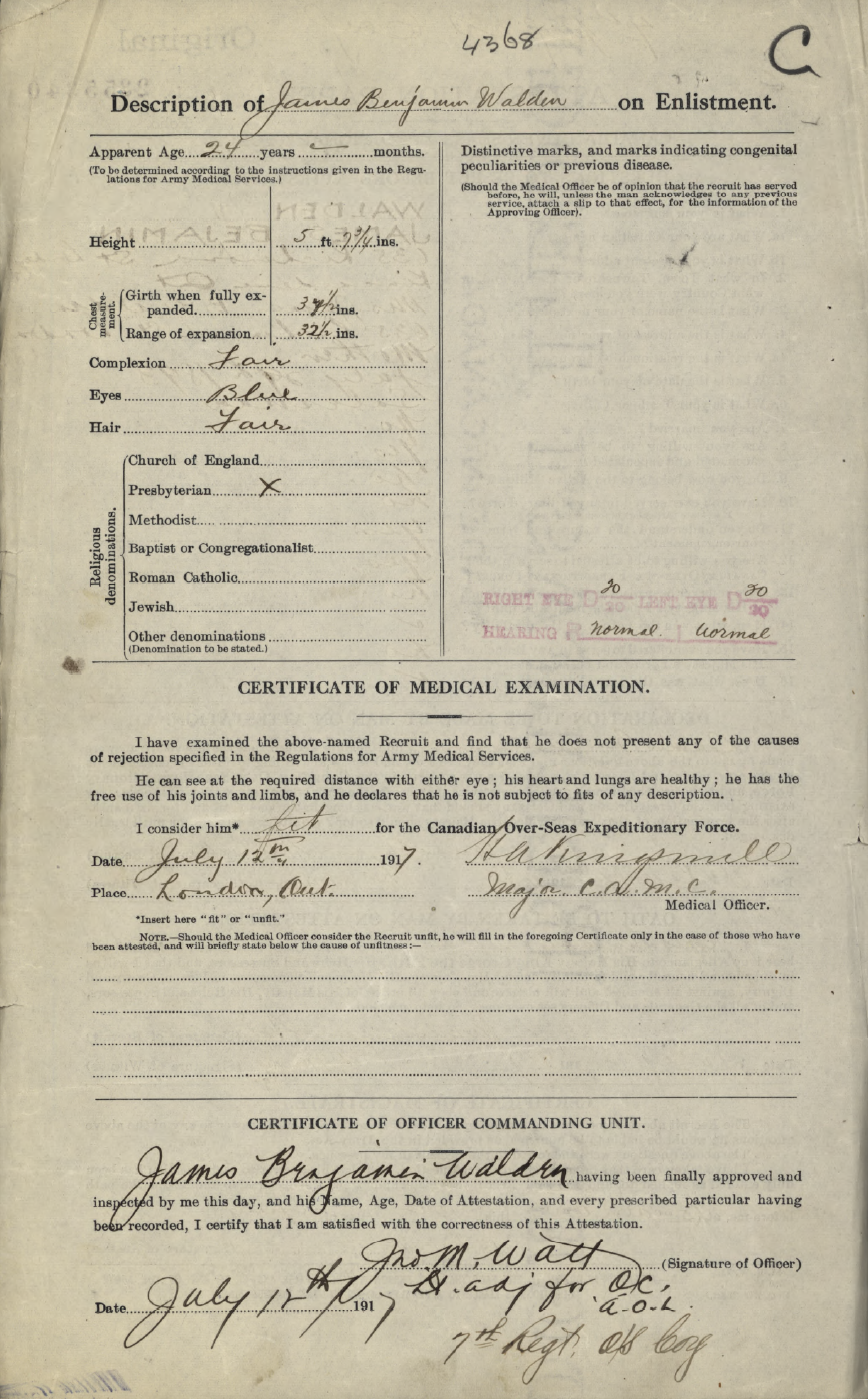 4368
C
Description of James Benjamin Walden on Enlistment.
Apparent Age 24 years months.
(To be determined according to the instructions given in the Regu-
lations for Army Medical Services.)
Height 5 ft. 7 3/4 ins.
Chest measure-ment.
Girth when fully ex-
panded ins.
Range of expansion 32½ ins.
Complexion Fair
Eyes Blue
Hair Fair
Religious denominations.
Church of England
Presbyterian X
Methodist
Baptist or Congregationalist
Roman Catholic
Jewish
Other denominations
(Denomination to be stated.)
Distinctive marks, and marks indicating congenital
peculiarities or previous disease.
(Should the Medical Officer be of opinion that the recruit has served
before, he will, unless the man acknowledges to any previous
service, attach a slip to that effect, for the information of the
Approving Officer).
RIGHT EYE D 20/20 LEFT EYE D 20/20
HEARING R normal L normal
CERTIFICATE OF MEDICAL EXAMINATION.
I have examined the above-named Recruit and find that he does not present any of the causes
of rejection specified in the Regulations for Army Medical Services.
He can see at the required distance with either eye ; his heart and lungs are healthy ; he has the
free use of his joints and limbs, and he declares that he is not subject to fits of any description.
I consider him* fit for the Canadian Over-Seas Expeditionary Force.
Date July 12th 1917. HA Kingsmill
Place London, Ont. Major C.A.M.C.
Medical Officer.
*Insert here "fit" or "unfit."
NOTE.—Should the Medical Officer consider the Recruit unfit, he will fill in the foregoing Certificate only in the case of those who have
been attested, and will briefly state below the cause of unfitness :—
CERTIFICATE OF OFFICER COMMANDING UNIT.
James Benjamin Walden having been finally approved and
inspected by me this day, and his Name, Age, Date of Attestation, and every prescribed particular having
been recorded, I certify that I am satisfied with the correctness of this Attestation.
Jno. M. Watt (Signature of Officer)
Lt. adj for O.C.
Date July 12th 1917
7th Regt. O/S Coy